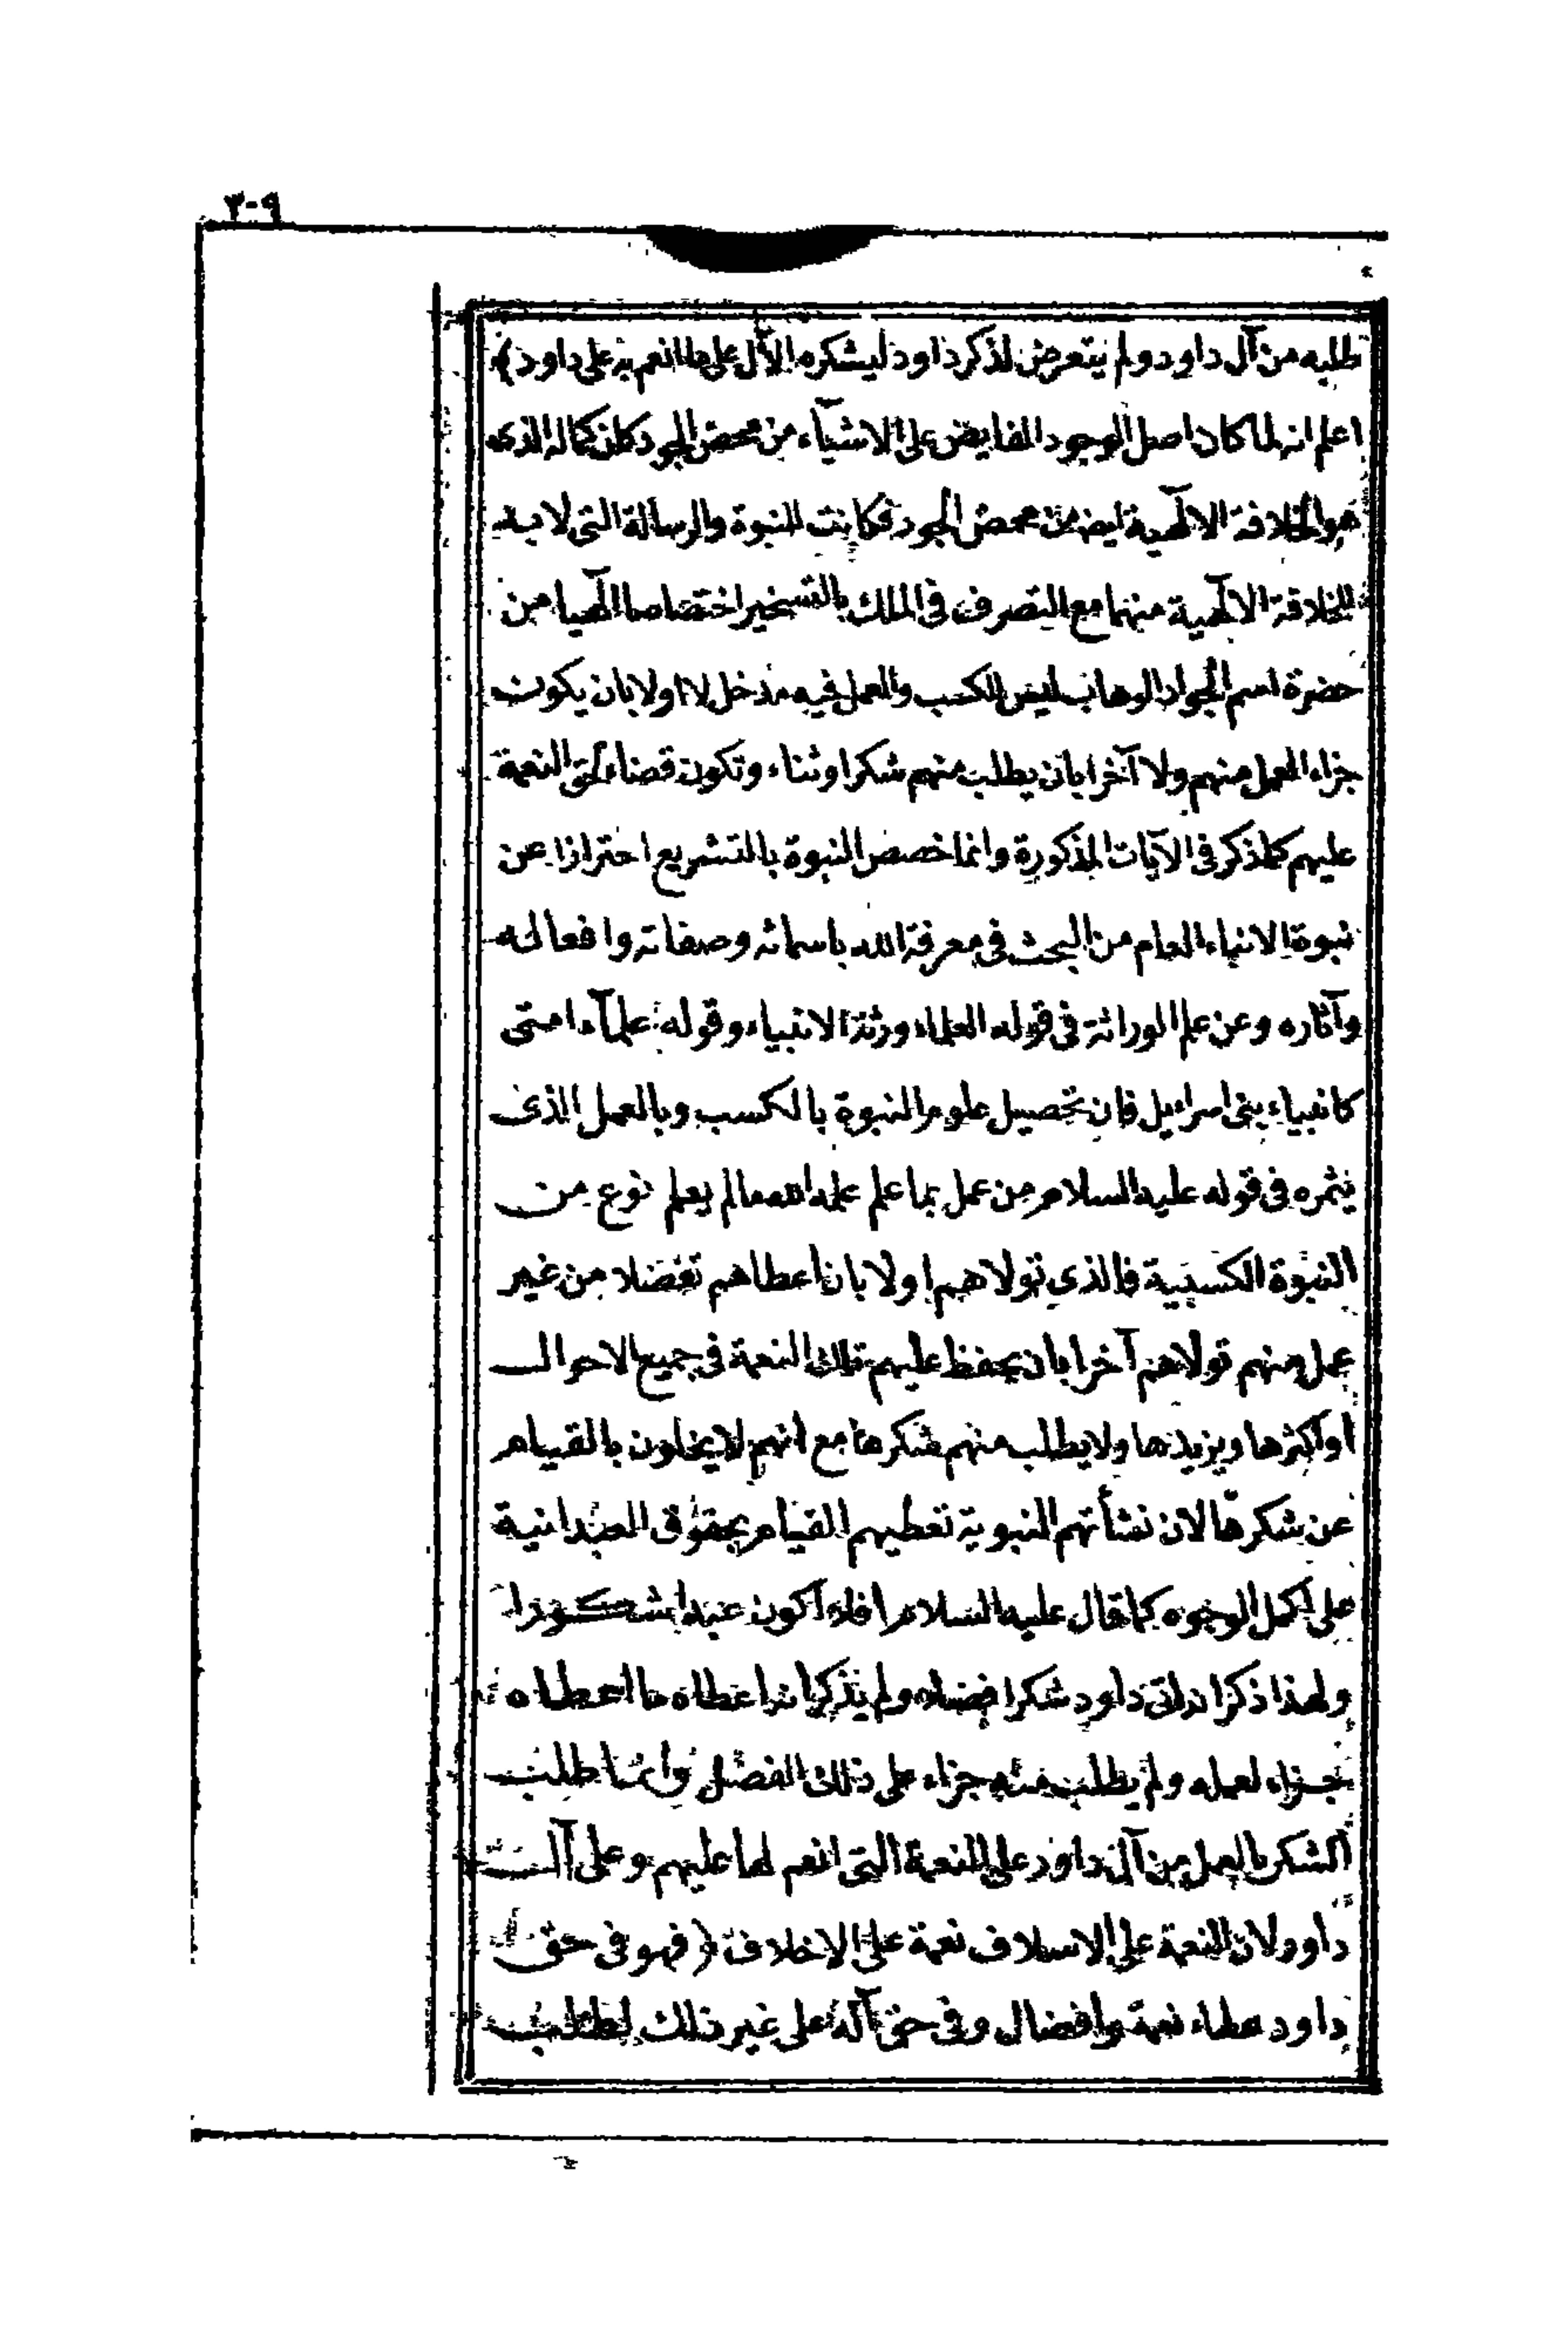 ٣٠٩
طلبه من آل داود ولم يتعرض لذكر داود ليشكره الآل على ما انعم به على داود ﴾
اعلم انه لما كان اصل الوجود الفايض على الاشيآء من محض الجود كان كماله الذى
هو الخلافة الالٓهية ايضا من محض الجود فكانت النبوة والرسالة التى لابد
للخلافة الالٓهية منهما مع التصرف فى الملك بالتسخير اختصاصا الٓهيا من
حضرة اسم الجواد الوهاب ليس للكسب والعمل فيه مدخل لا اولا بان يكون
جزاء العمل منهم ولا آخرا بان يطلب منهم شكرا وثناء وتكون قضاء لحق النعمة
عليهم كما ذكر فى الآيات المذكورة وانما خصص النبوة بالتشريع احترازا عن
نبوة الانباء العام من البحث فى معرفة الله باسمائه وصفاته وافعاله
وآثاره وعن علم الوراثة فى قوله العلماء ورثة الانبياء وقوله علمآء امتى
كانبياء بنى اسرائيل فان تحصيل علوم النبوة بالكسب وبالعمل الذى
يثمره فى قوله عليه السلام من عمل بما علم علمه الله ما لم يعلم نوع من
النبوة الكسبية فالذى تولاهم اولا بان اعطاهم تفضلا من غير
عمل منهم تولاهم آخرا بان يحفظ عليهم تلك النعمة فى جميع الاحوال
او اكثرها ويزيدها ولا يطلب منهم شكرها مع انهم لا يخلون بالقيام
عن شكرها لان نشأتهم النبوية تعطيهم القيام بحقوق العبدانية
على اكمل الوجوه كما قال عليه السلام افلا اكون عبدا شكورا
ولهذا ذكر انه اتى داود شكرا فضله ولم يذكر انه اعطاه ما اعطاه
جزاء لعمله ولم يطلب منه جزاء على ذلك الفضل وانما طلب
الشكر بالعمل من آل داود على النعمة التى انعم بها عليهم وعلى آل
داود لان النعمة على الاسلاف نعمة على الاخلاف ﴿ فهو فى حق
داود عطاء نعمة وافضال وفى حق آله على غير ذلك لطلب